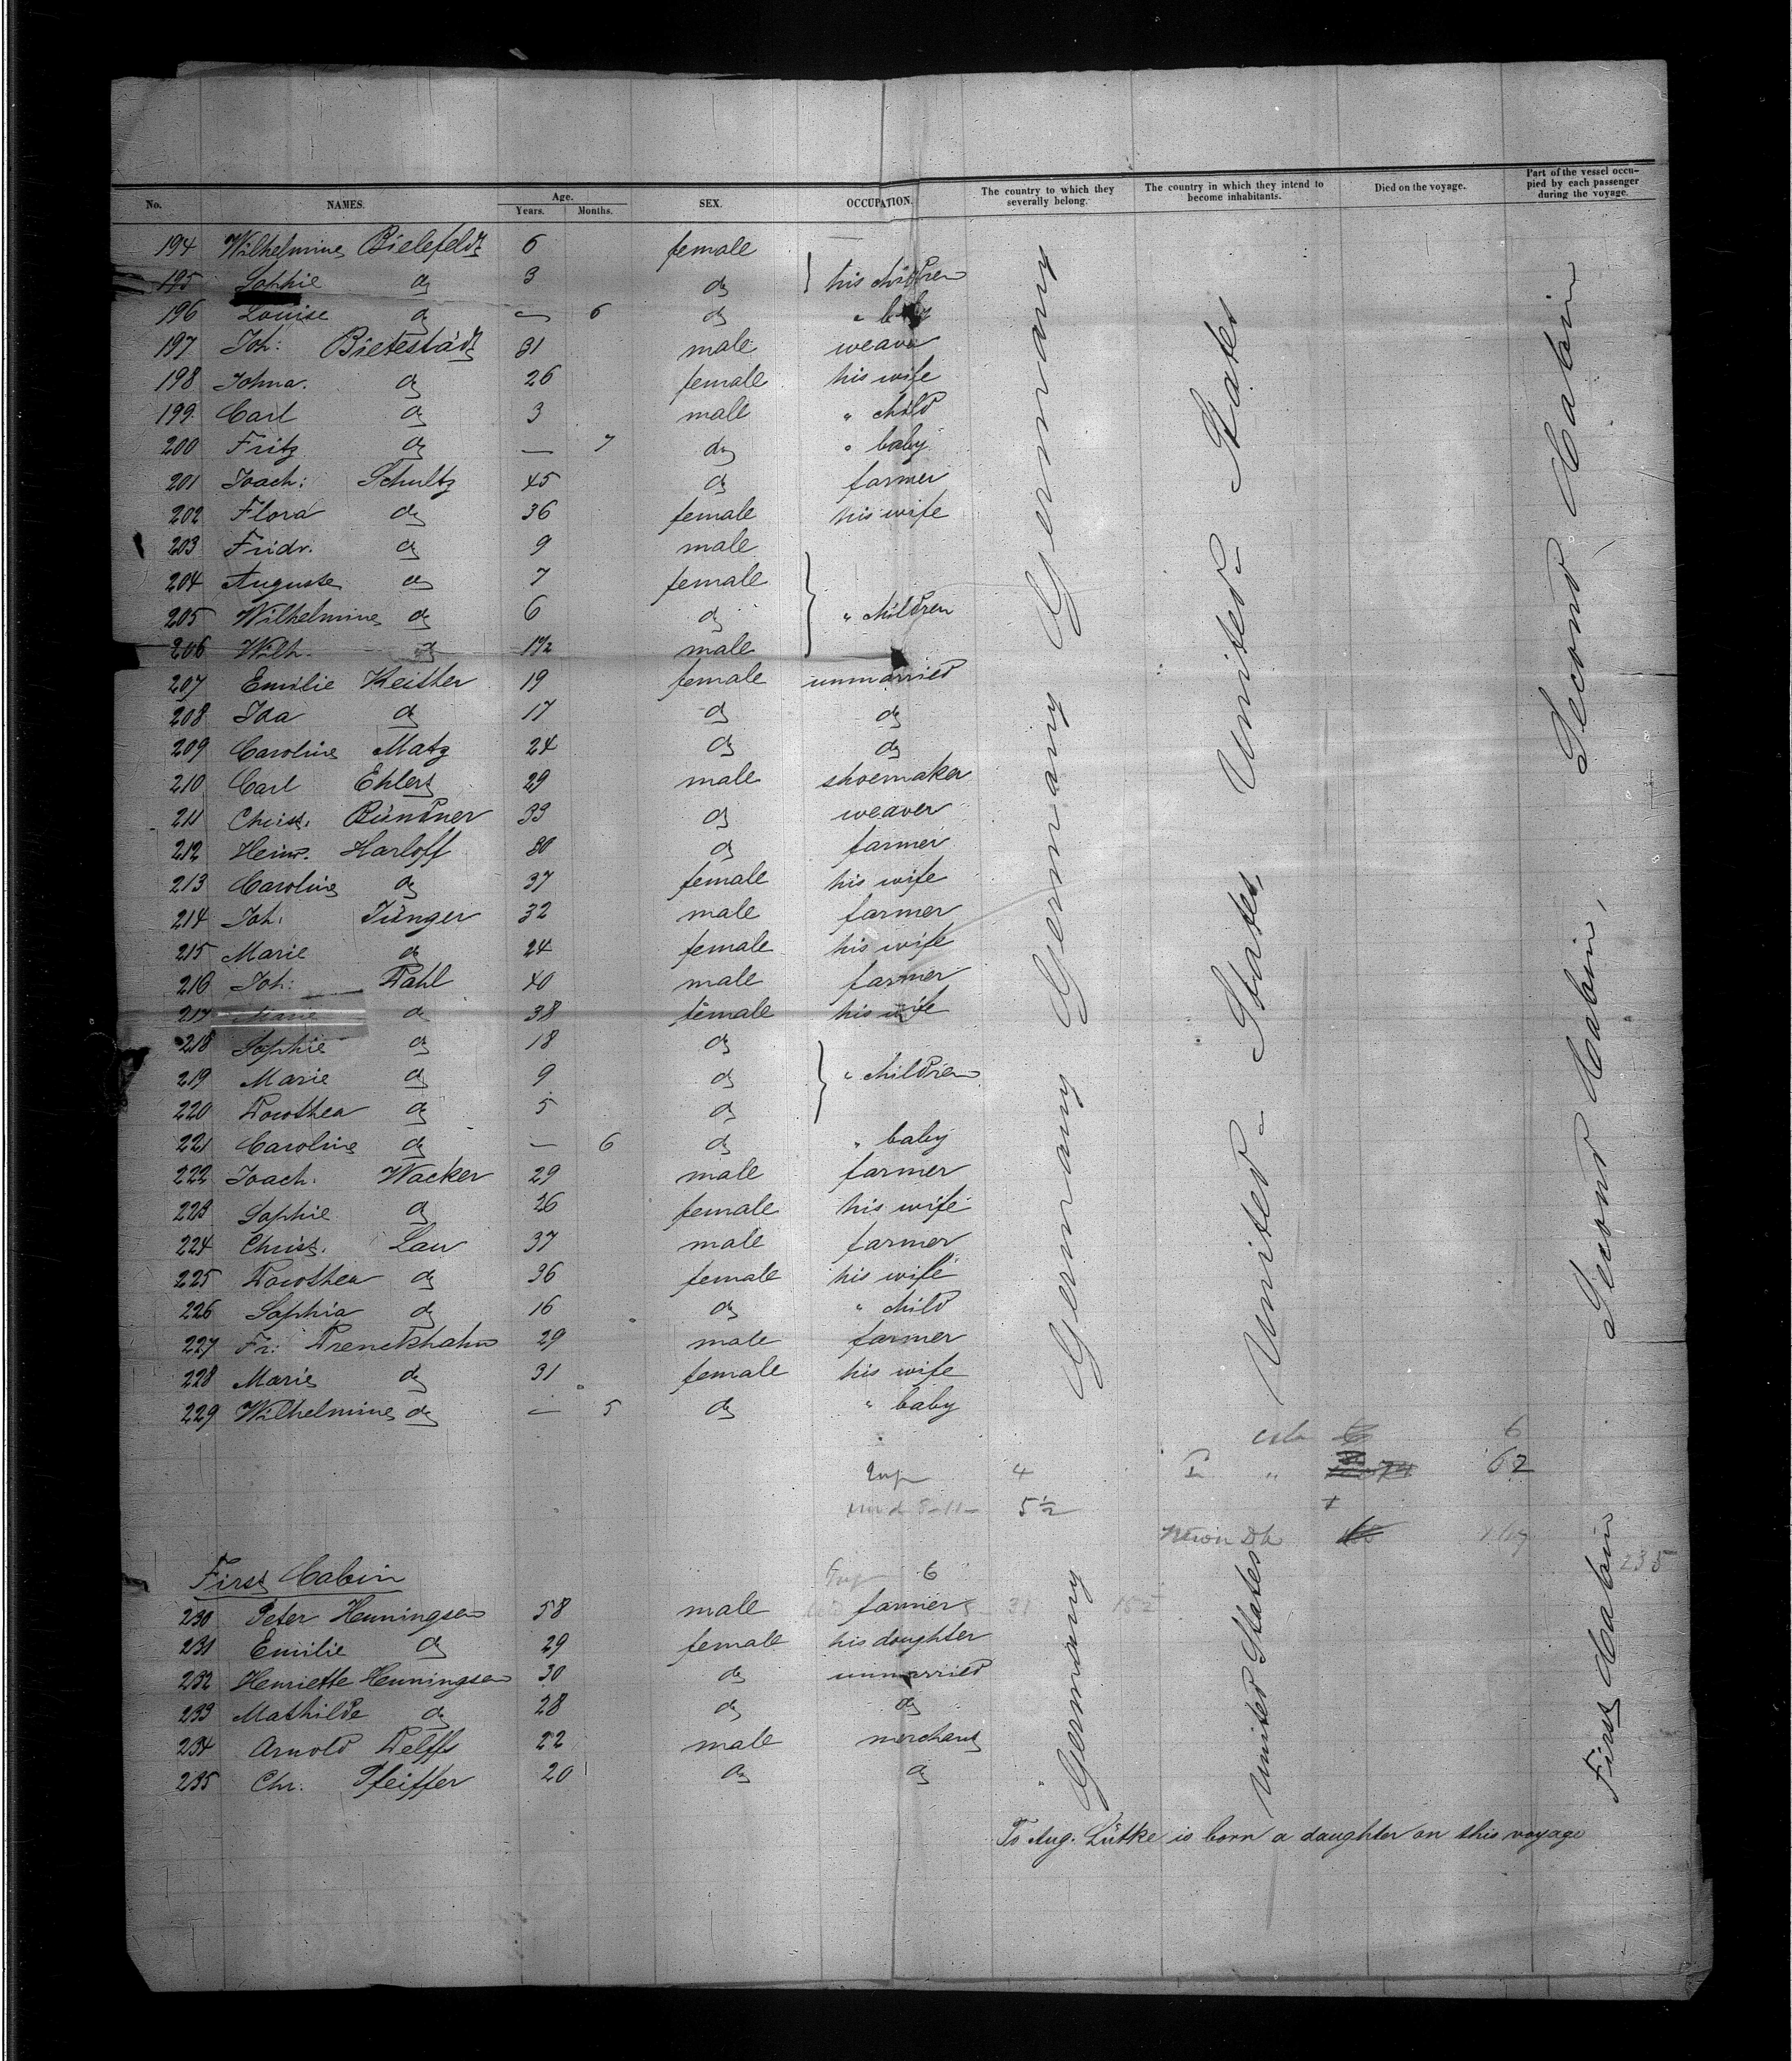 No. NAMES. Age. Years. Months. SEX. OCCUPATION. The country to which they severally belong. The country in which they intend to become inhabitants. Died on the voyage. Part of the vessel occupied by each passenger during the voyage.
194 Wilhelmine Bielefeldt 6 female
195 Sophie do 3 do his children
196 Louise do — 6 do " baby
197 Joh: Bietestädt 31 male weaver
198 Johna. do 26 female his wife
199 Carl do 3 male " child
200 Fritz do — 7 do " baby
201 Joach: Schultz 45 do farmer
202 Flora do 36 female his wife
203 Fridr. do 9 male
204 Auguste do 7 female
205 Wilhelmine do 6 do " children
206 Wilh. do 1 1/2 male
207 Emilie 19 female unmarried
208 Ida do 17 do do
209 Caroline Matz 24 do do
210 Carl Ehlers 29 male shoemaker
211 Christ. 33 do weaver
212 Heinr. Harloff 30 do farmer
213 Caroline do 37 female his wife
214 Joh: Jünger 32 male farmer
215 Marie do 24 female his wife
216 Joh: Dahl 40 male farmer
217 Marie do 38 female his wife
218 Sophie do 18 do
219 Marie do 9 do " children
220 Dorothea do 5 do
221 Caroline do — 6 do " baby
222 Joach. Wacker 29 male farmer
223 Sophie do 26 female his wife
224 Christ. Lau 37 male farmer
225 Dorothea do 36 female his wife
226 Sophia do 16 do " child
227 Fr: Prenckhahn 29 male farmer
228 Marie do 31 female his wife
229 Wilhelmine do — 5 do " baby
Germany Germany Germany Germany
United-States United-States
Second Cabin Second Cabin,
6
4 " 62
5 1/2
6 235
First Cabin
230 Peter Henningsen 58 male farmer 31 152
231 Emilie do 29 female his daughter
232 Henriette Henningsen 30 do unmarried
233 Mathilde do 28 do do
234 Arnold Delffs 22 male merchant
235 Chr. Pfeiffer 20 do do
Germany
United States
First Cabin
To Aug. Lütke is born a daughter on this voyage